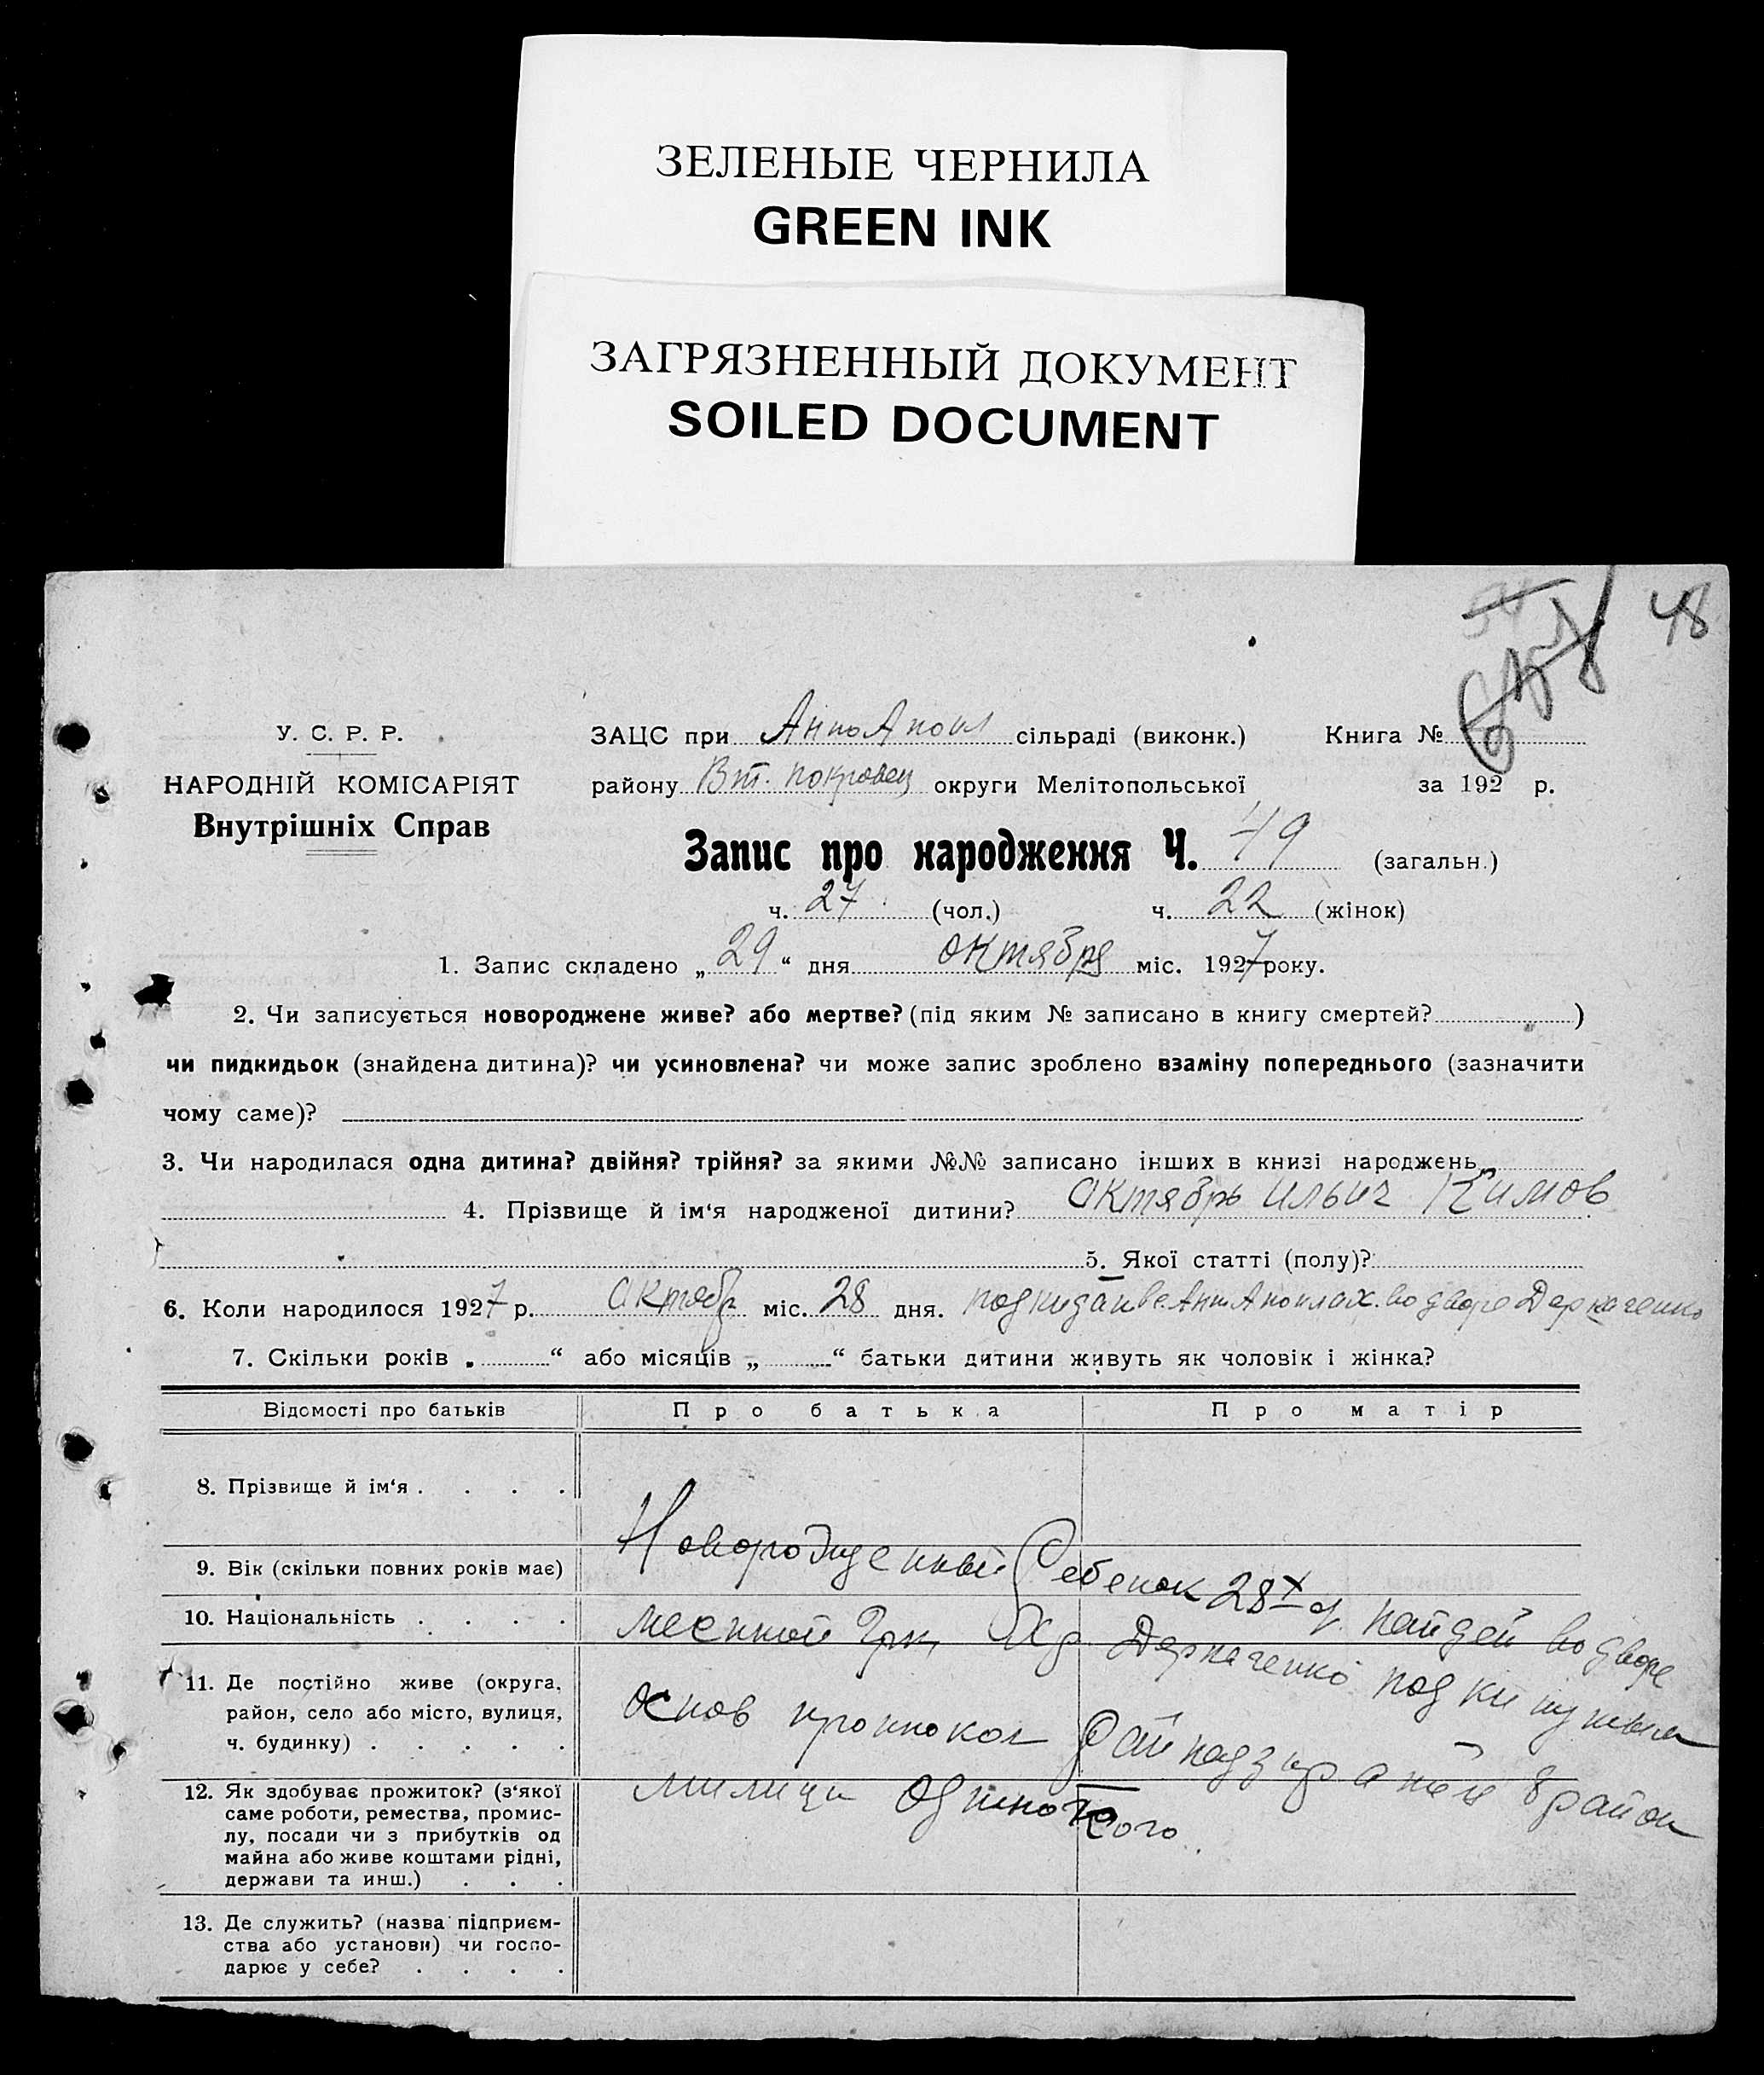 ЗЕЛЕНЫЕ ЧЕРНИЛА
GREEN INK
ЗАГРЯЗНЕННЫЙ ДОКУМЕНТ
SOILED DOCUMENT
48
У. С. Р. Р.
НАРОДНІЙ КОМІСАРІЯТ
Внутрішніх Справ
ЗАЦС при АнноАпол сільраді (виконк.) Книга №
району Вт. покровец округи Мелітопольської за 192 р.
Запис про народження Ч. 49 (загальн.)
ч. 27 (чол.) ч. 22 (жінок)
1. Запис складено „ 29 “ дня октября міс. 1927 року.
2. Чи записується новороджене живе? або мертве? (під яким № записано в книгу смертей? )
чи пидкидьок (знайдена дитина)? чи усиновлена? чи може запис зроблено взаміну попереднього (зазначити
чому саме)?
3. Чи народилася одна дитина? двійня? трійня? за якими №№ записано інших в книзі народжень
4. Прізвище й ім‘я народженої дитини? Октябрь Ильич Кимов
5. Якої статті (полу)?
6. Коли народилося 1927 р. Октябр міс. 28 дня. во дворе Деркаченко
7. Скільки років „ “ або місяців „ “ батьки дитини живуть як чоловік і жінка?
Відомості про батьків Про батька Про матір
8. Прізвище й ім‘я . . . .
9. Вік (скільки повних років має)
Новорожденный Ребенок 28 X найден во дворе
10. Національність . . . .
Деркаченко
11. Де постійно живе (округа,
район, село або місто, вулиця,
ч. будинку) . . . . .
основ протокол Райнадзирателя 8 район
12. Як здобуває прожиток? (з‘якої
саме роботи, ремества, промис-
лу, посади чи з прибутків од
майна або живе коштами рідні,
держави та инш.) . . .
милици
13. Де служить? (назва підприєм-
ства або установи) чи госпо-
дарює у себе? . . . .